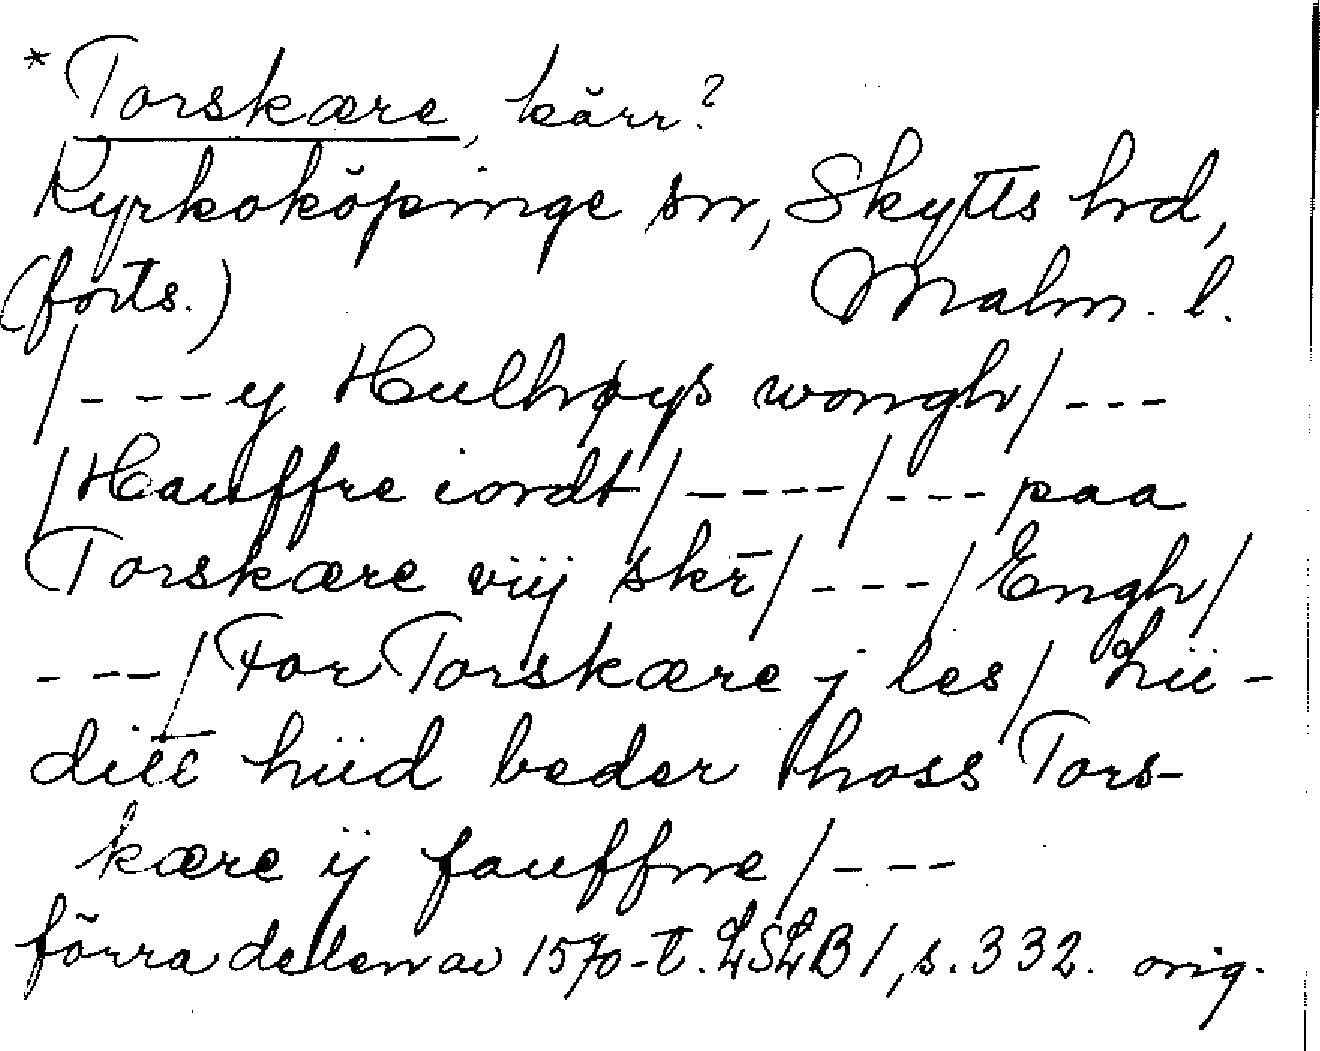 *Torskære, kärr?
Kyrkoköpinge sn, Skytts hd,
(forts.) Malm. l.
/ - - - y Hulhøys wongh / - - -
/ Hauffre iordt / - - - - / - - - paa
Torskære viij skr̄ / - - - / Engh /
- - - / For Torskære j les / Lii-
ditt hiid beder hoss Tors-
kære ij fauffne / - - -
förra delen av 1570-t. LSLB 1, s. 332. orig.